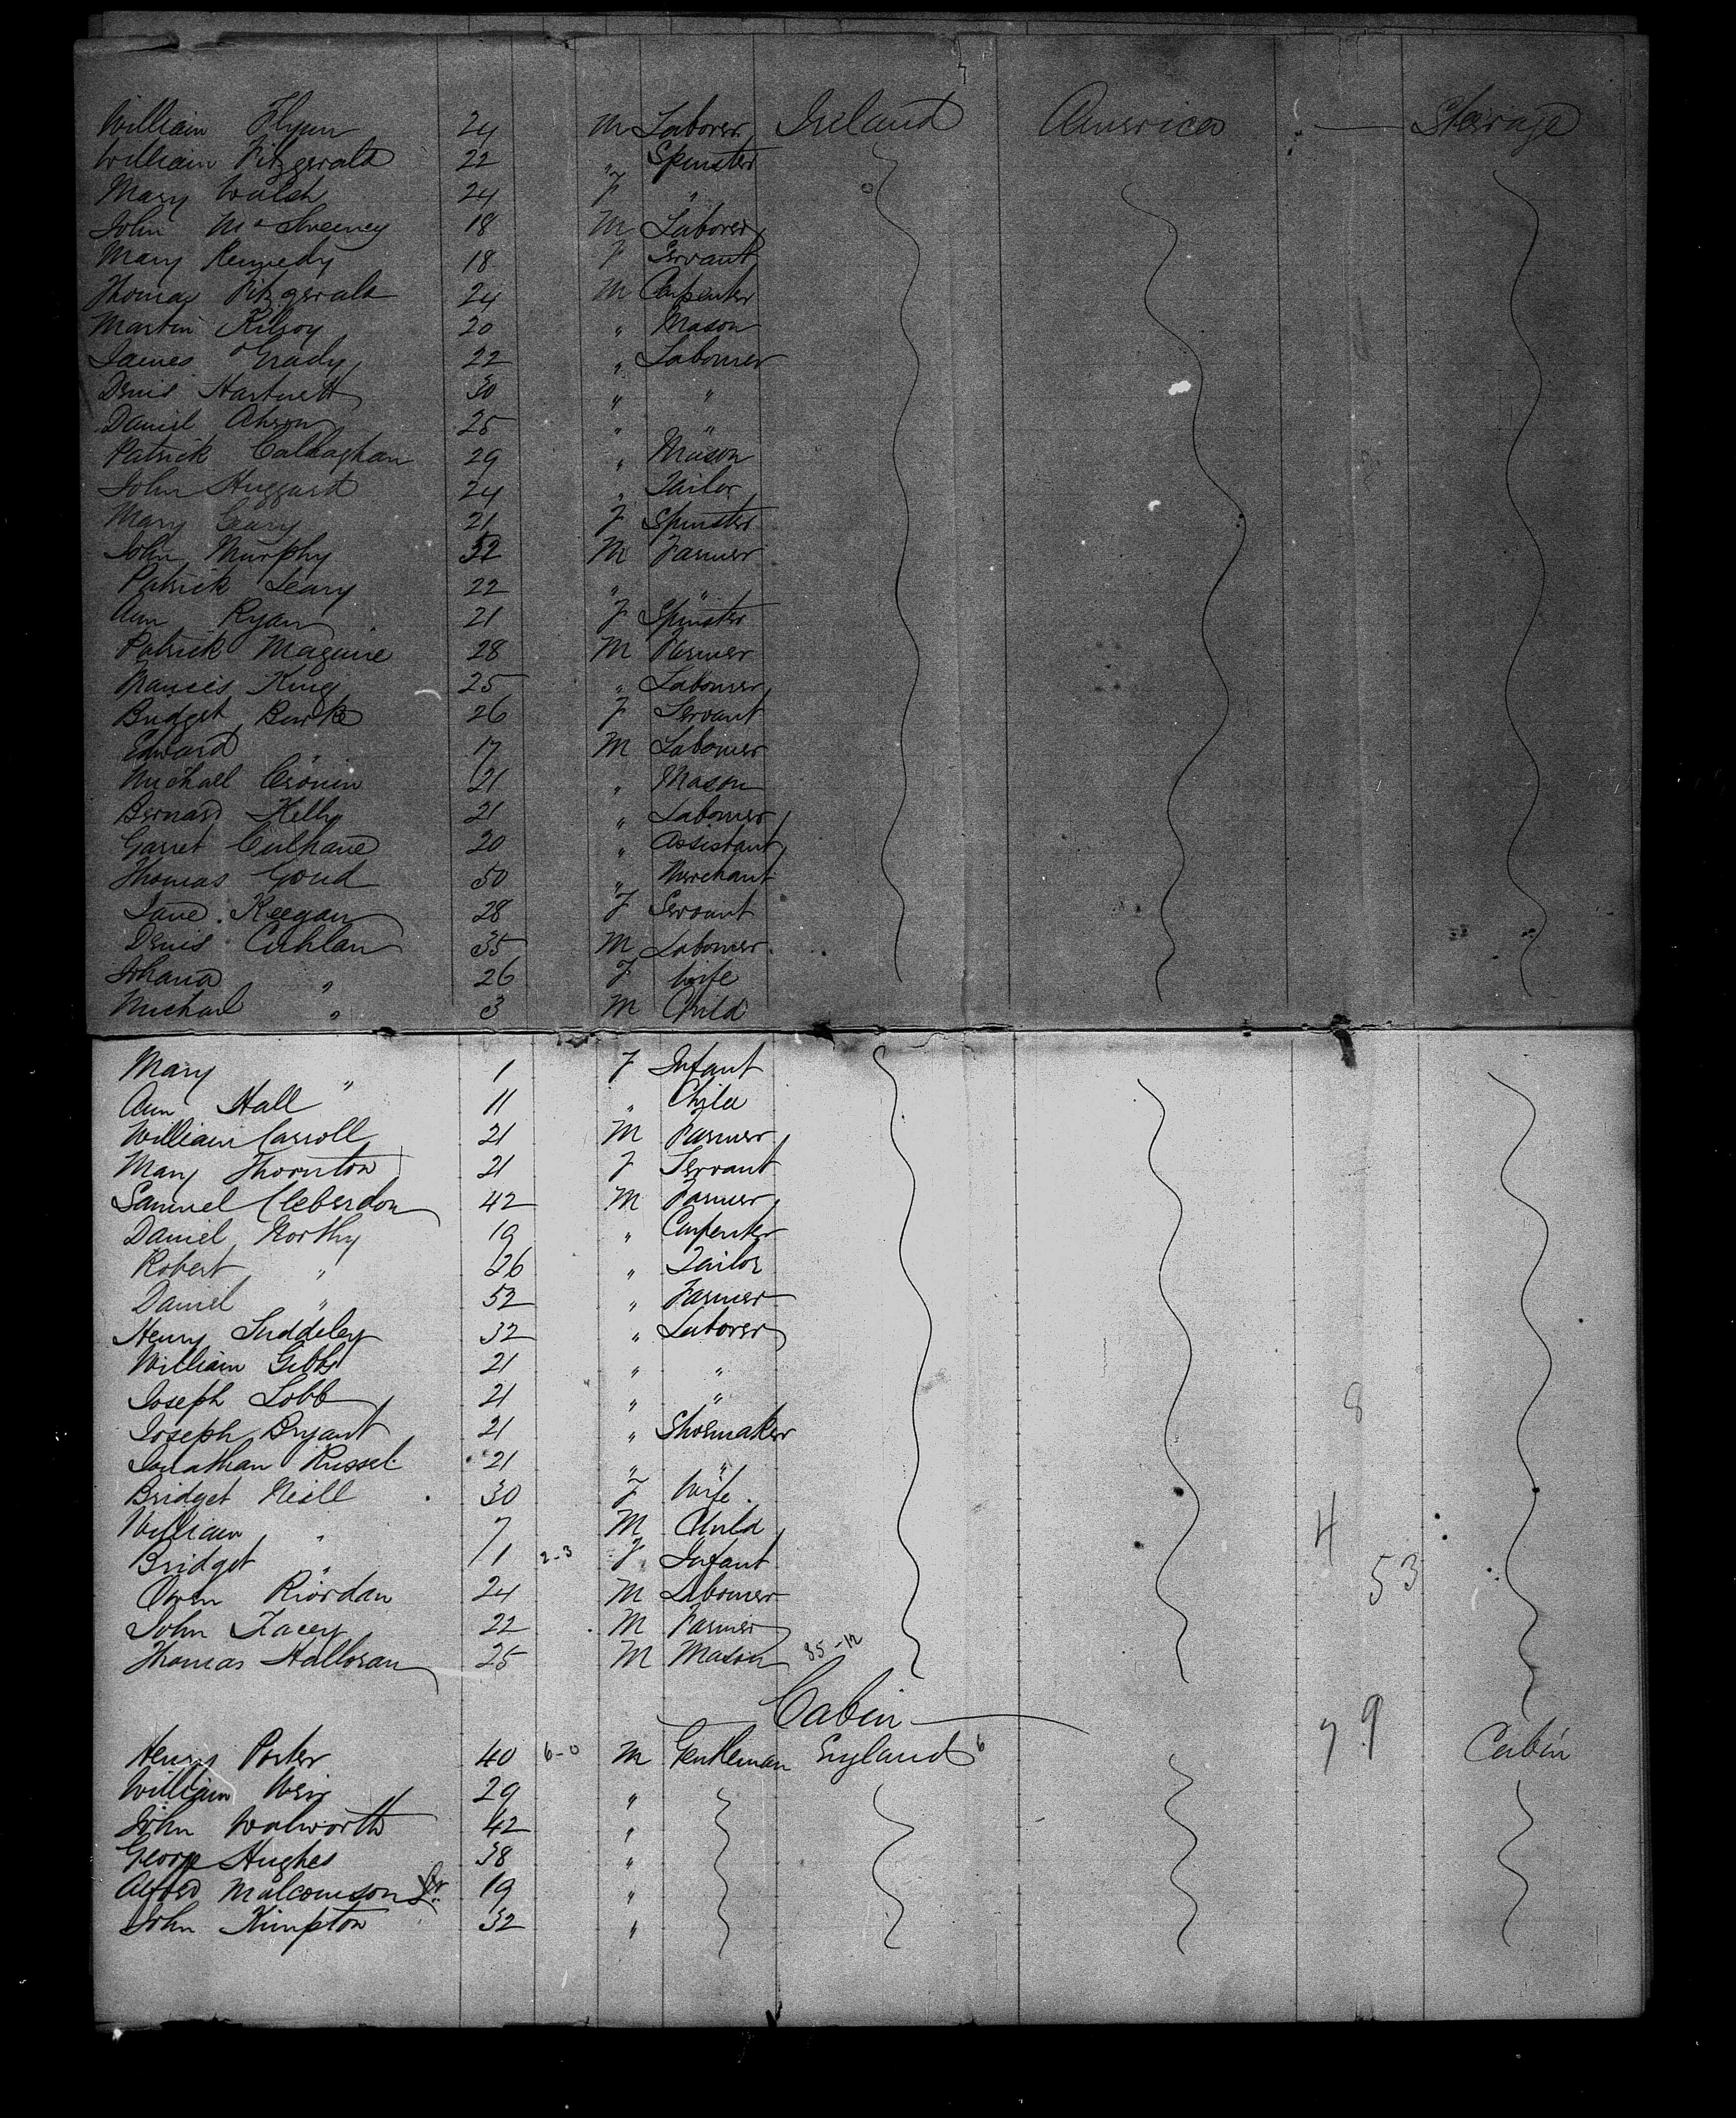 William Flynn 24 M Laborer Ireland America " — Steirage
William Fitzgerald 22 " Spinster
Mary Walsh 24 F "
John McSweeney 18 M Laborer
Mary Kennedy 18 F Servant
Thomas Fitzgerald 24 M Carpenter
Martin Kilroy 20 " Mason
James O'Grady 22 " Labourer
Denis Hartnett 30 " "
Daniel Ahern 25 " "
Patrick Callaghan 29 " Mason
John Huggard 24 " Tailor
Mary Geary 21 F Spinster
John Murphy 32 M Farmer
Patrick Leary 22 " "
Ann Ryan 21 F Spinster
Patrick Maguire 28 M Farmer
Francis King 25 " Labourer
Bridget Burke 26 F Servant
Edward 17 M Labourer
Michael Cronin 21 " Mason
Bernard Kelly 21 " Labourer
Garret Culhane 20 " Assistant
Thomas Goud 50 " Merchant
Jane Keegan 28 F Servant
Denis Cuhlan 35 M Labourer
Johana " 26 F Wife
Michael " 3 M Child
Mary " 1 F Infant
Ann Hall 11 " Child
William Carroll 21 M Farmer
Mary Thornton 21 F Servant
Samuel Cleberdon 42 M Farmer
Daniel Northy 19 " Carpenter
Robert " 26 " Tailor
Daniel " 52 " Farmer
Henry Suddeley 32 " Laborer
William Gibbs 21 " "
Joseph Lobb 21 " "
Joseph Bryant 21 " Shoemaker
Jonathan Russel 21 " "
Bridget Neill 30 F Wife
William " 7 M Child
Bridget " 1 2-3 F Infant
Owen Riordan 24 M Labourer
John Facey 22 M Farmer
Thomas Halloran 25 M Mason 85-12
8
4
53
Cabin
79
Henry Porter 40 6-0 M Gentleman England 6 Cabin
William Weir 29 "
John Walworth 42 "
George Hughes 38 "
Alfred Malcomson 19 "
John Kimpton 32 "